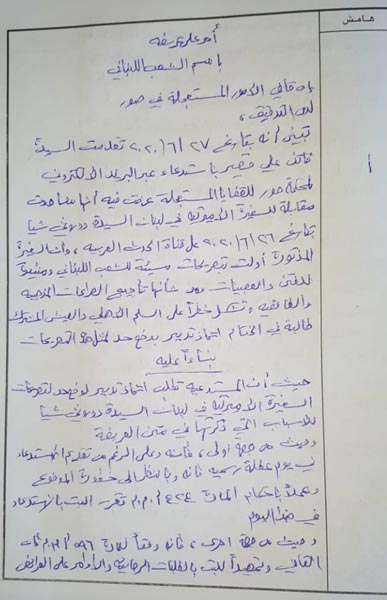 هامش
أمر على عريضة
باسم الشعب اللبناني
إن قاضي الأمور المستعجلة في صور
لدى التدقيق،
تبين أنه بتاريخ ٢٧/٦/٢٠٢٠ تقدمت السيدة
فاتن علي قصير باستدعاء عبر البريد الالكتروني
لمحكمة صور للقضايا المستعجلة عرضت فيه أنها شاهدت
مقابلة للسفيرة الأميركية في لبنان السيدة دوروثي شيا
بتاريخ ٢٦/٦/٢٠٢٠ على قناة الحدث العربية، وأن السفيرة
المذكورة أدلت بتصريحات مسيئة للشعب اللبناني ومثيرة
للفتن والعصبيات ومن شأنها تأجيج الصراعات المذهبية
والطائفية وتشكل خطراً على السلم الأهلي والعيش المشترك
طالبة في الختام اتخاذ تدبير بوضع حد لمثل هذه التصريحات
بناءً عليه
حيث أن المستدعية تطلب اتخاذ تدبير لوضع حد لتصريحات
السفيرة الأميركية في لبنان السيدة دوروثي شيا
للأسباب التي ذكرتها في متن العريضة
وحيث من جهة أولى، فإنه وعلى الرغم من تقديم الاستدعاء
في يوم عطلة رسمية فإنه وبالنظر الى خطورة الموضوع
وعملاً بأحكام المادة ٤٢٤/أ.م.م تقرر البت بالاستدعاء
في هذا اليوم
وحيث من جهة أخرى، فإنه وفقاً للمادة ٥٩٦/أ.م.م فإن
القاضي وتمهيداً للبت بالطلبات الرجائية والأوامر على العرائض